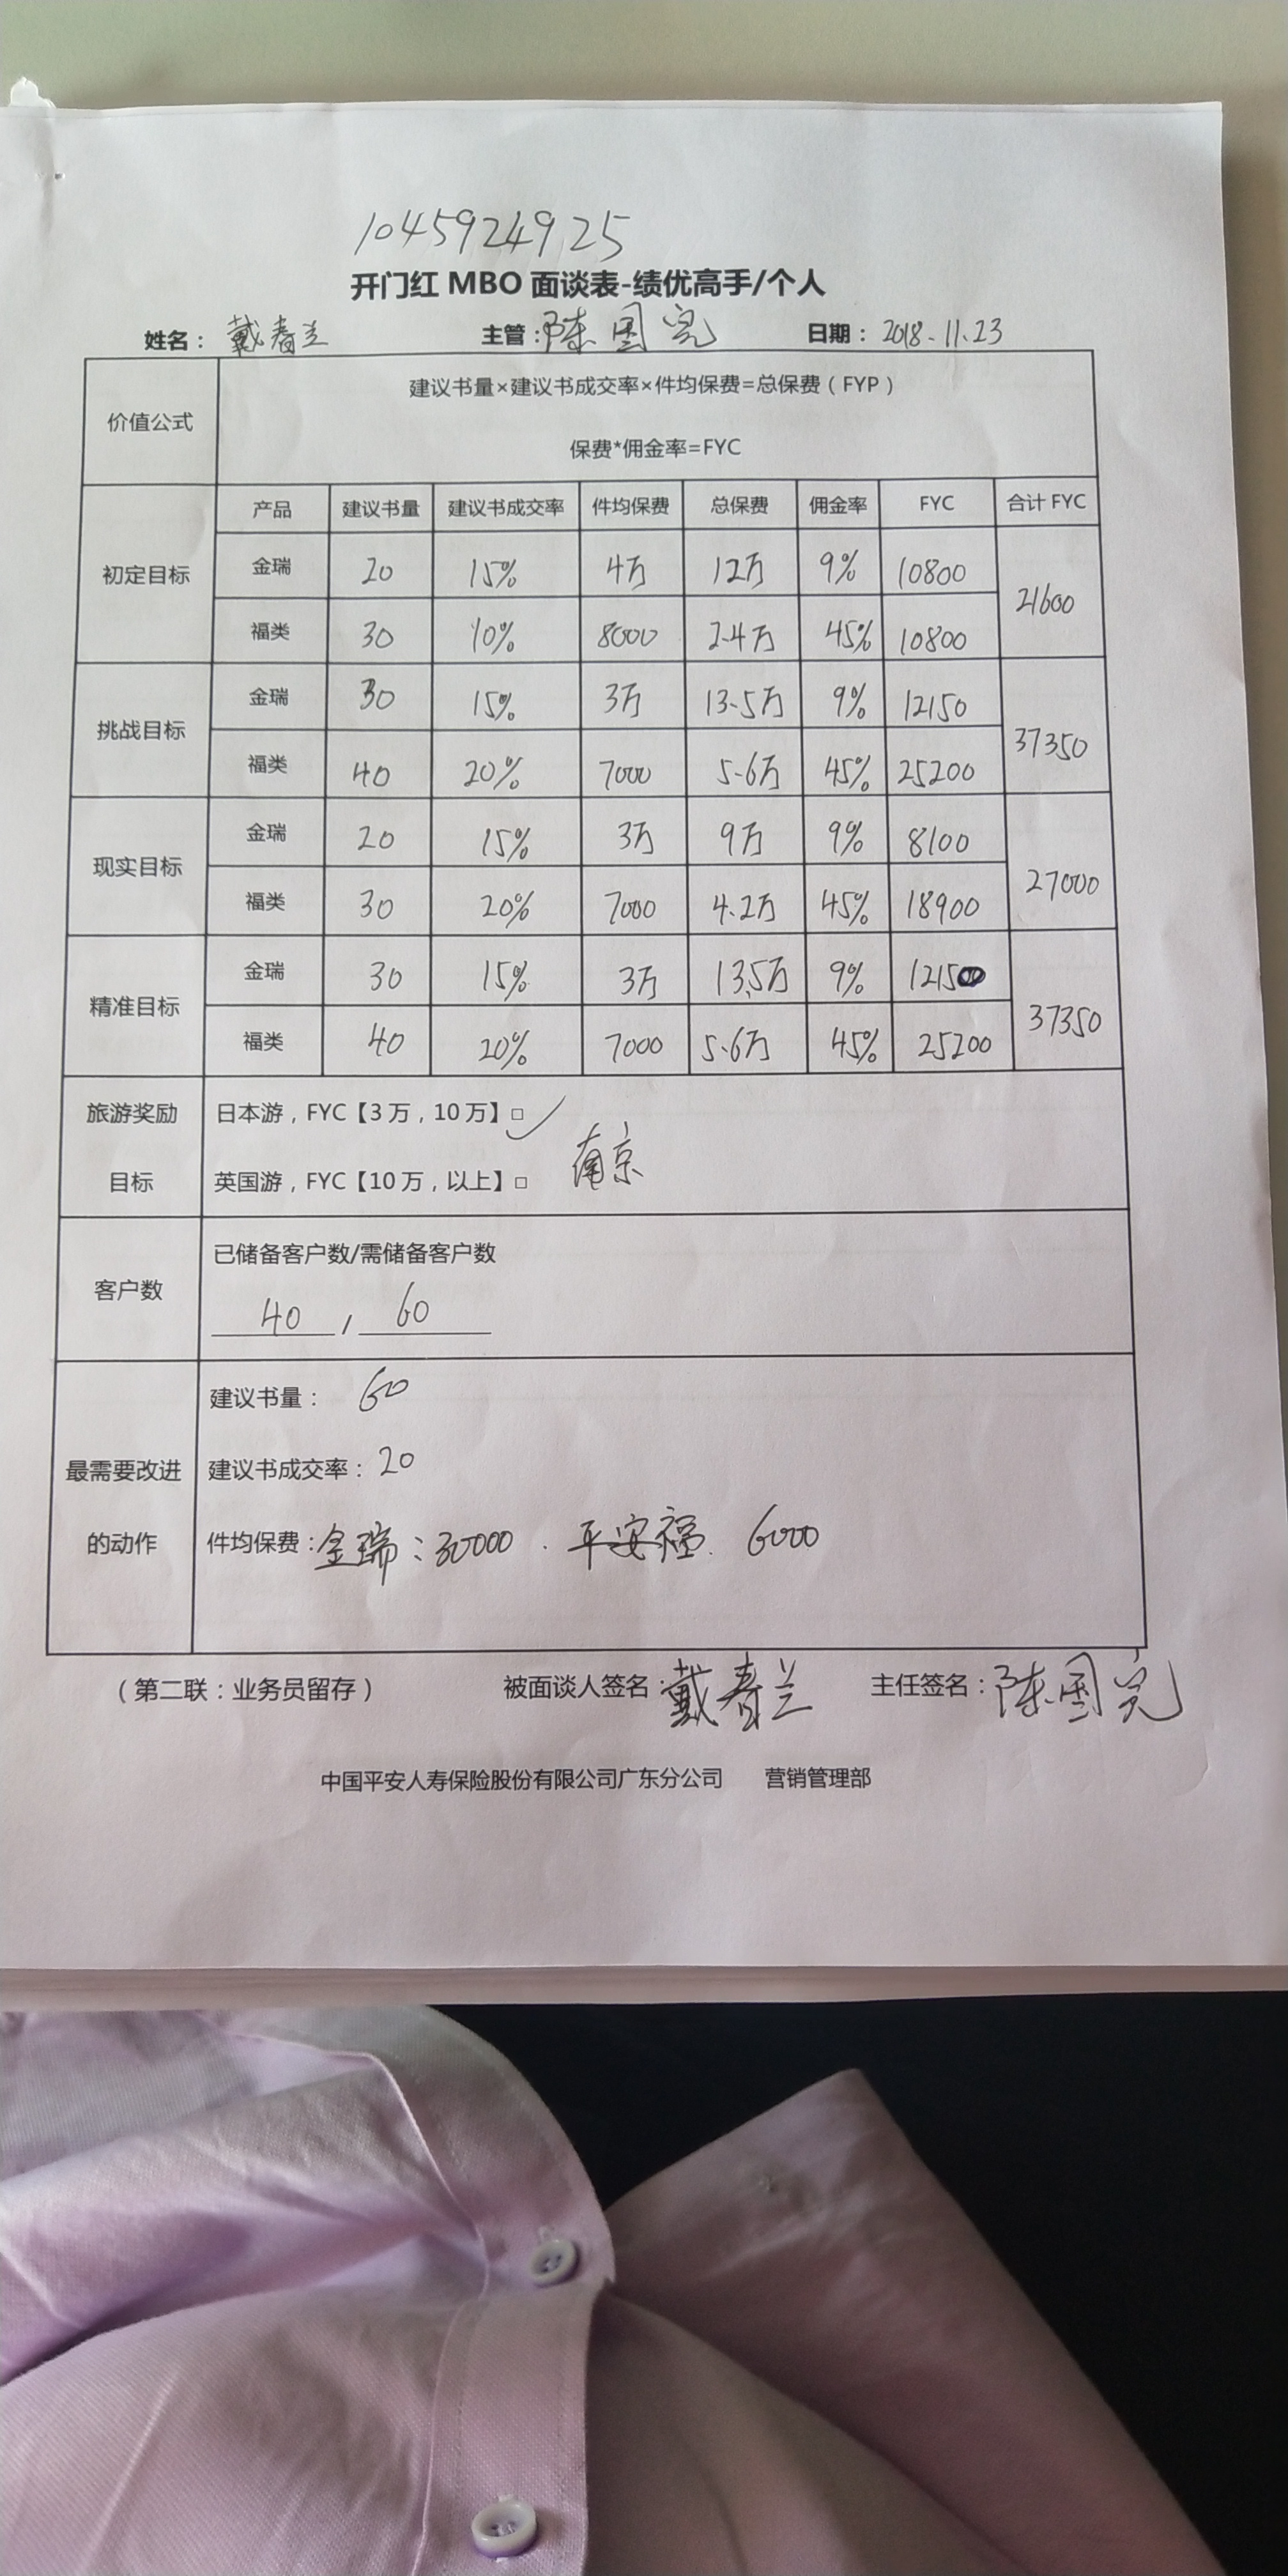 1045924925
开门红 MBO 面谈表-绩优高手/个人
姓名： 戴春兰 主管：陈国完 日期： 2018.11.23
价值公式 建议书量×建议书成交率×件均保费=总保费（FYP）
保费*佣金率=FYC
产品 建议书量 建议书成交率 件均保费 总保费 佣金率 FYC 合计 FYC
初定目标 金瑞 20 15% 4万 12万 9% 10800 21600
福类 30 10% 8000 2.4万 45% 10800
挑战目标 金瑞 30 15% 3万 13.5万 9% 12150 37350
福类 40 20% 7000 5.6万 45% 25200
现实目标 金瑞 20 15% 3万 9万 9% 8100 27000
福类 30 20% 7000 4.2万 45% 18900
精准目标 金瑞 30 15% 3万 13.5万 9% 12150 37350
福类 40 20% 7000 5.6万 45% 25200
旅游奖励 日本游，FYC【3 万，10 万】□ ✓
南京
目标 英国游，FYC【10 万，以上】□
客户数 已储备客户数/需储备客户数
40 / 60
建议书量： 60
最需要改进 建议书成交率：20
的动作 件均保费：金瑞：30000 . 平安福. 6000
（第二联：业务员留存） 被面谈人签名：戴春兰 主任签名：陈国完
中国平安人寿保险股份有限公司广东分公司 营销管理部